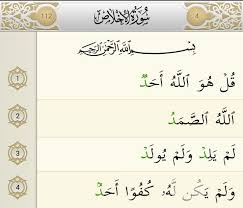 112 سُورَةُ الإِخْلَاصِ 4
بِسْمِ اللَّهِ الرَّحْمَٰنِ الرَّحِيمِ
1 قُلْ هُوَ اللَّهُ أَحَدٌ
2 اللَّهُ الصَّمَدُ
3 لَمْ يَلِدْ وَلَمْ يُولَدْ
4 وَلَمْ يَكُن لَّهُ كُفُوًا أَحَدٌ